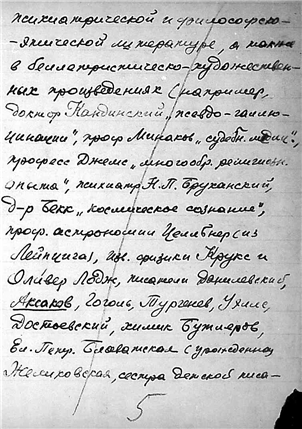 психиатрической и философско-
-этической литературе, а также
в беллетристическо-художествен-
ных произведениях (например,
доктор Кандинский „псевдо-галлю-
цинации", проф Минаков „судебн. медиц.",
професс Джемс „многообр. религиозн.
опыта", психиатр Н.П. Бруханский,
д-р Бекк „космическое сознание",
проф. астрономии Целлнер (из
Лейпцига), физики Крукс и
Оливер Лодж, писатели Данилевский,
Аксаков, Гоголь, Тургенев, Уэллс,
Достоевский, химик Бутлеров,
Ел. Петр. Блаватская (урожденная
Желиховская, сестра детской писа-
5